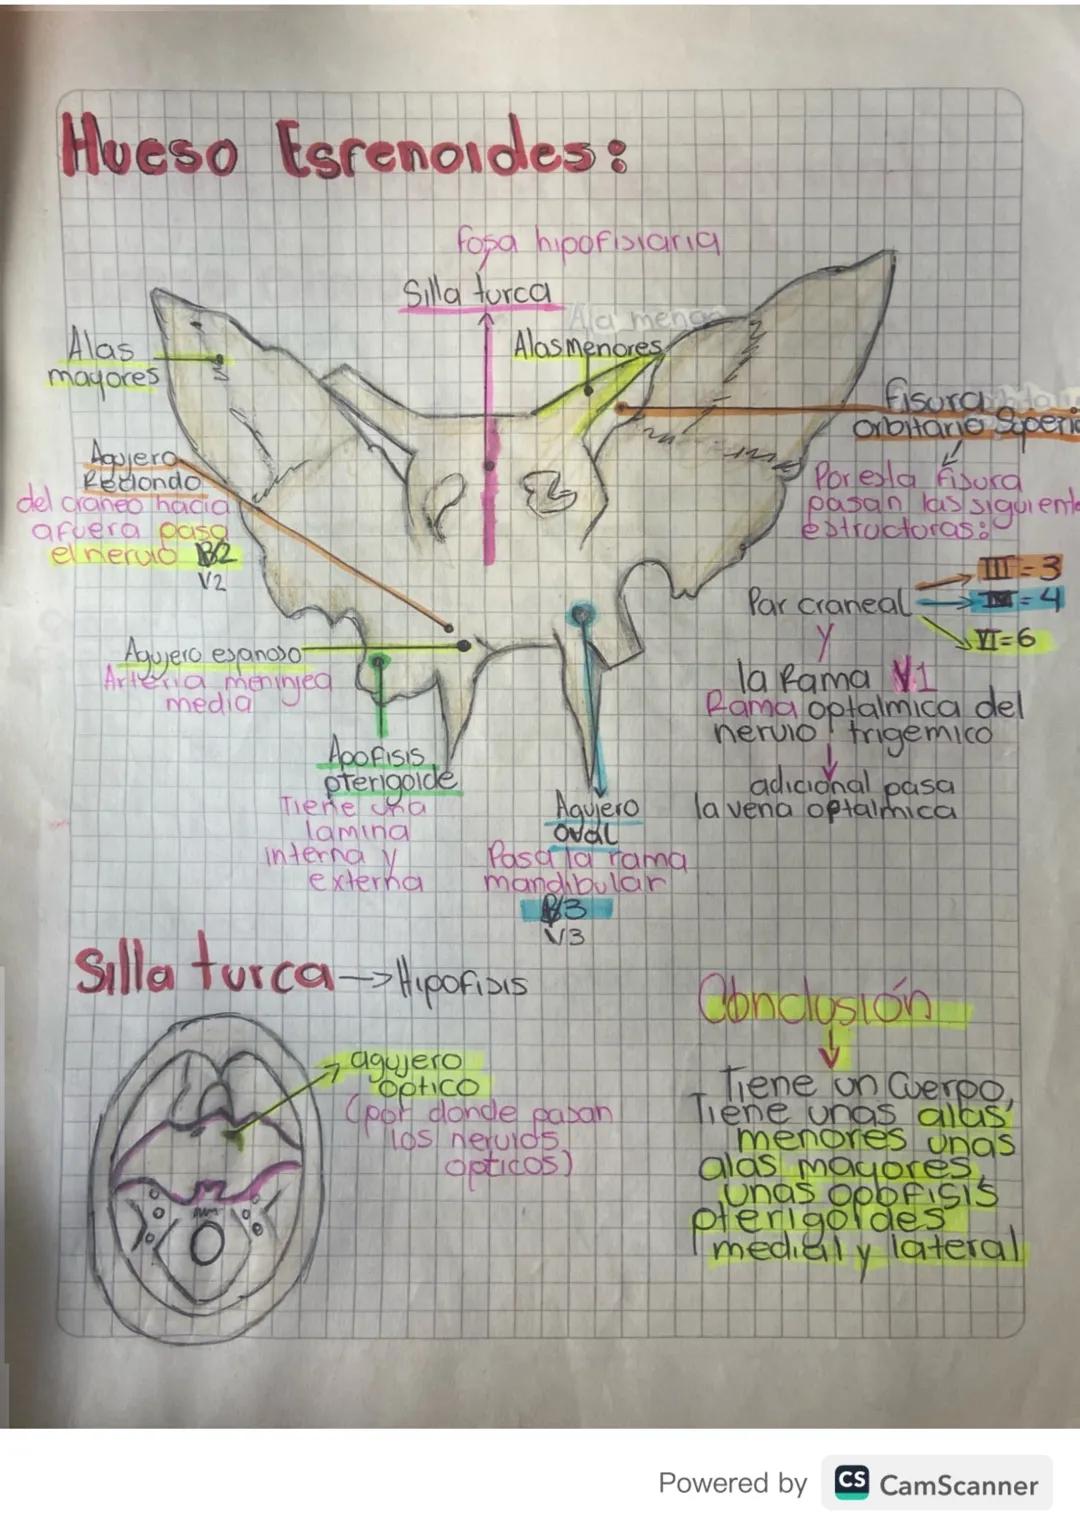 Hueso Esfenoides:
fosa hipofisiaria
Silla turca
Ala menor
Alas Menores
Alas
mayores
Fisura
orbitaria Superio
Agujero
Redondo
del craneo hacia
afuera pasa
el nervio B2
V2
Por esta fisura
pasan las siguiente
estructuras:
III = 3
Par craneal
IV = 4
VI = 6
Y
la Rama V1
Rama optalmica del
nervio trigemico
adicional pasa
la vena optalmica
Agujero espinoso
Arteria meningea
media
Apofisis
pterigoide
Tiene una
lamina
interna y
externa
Agujero
oval
Pasa la rama
mandibular
B3
V3
Silla turca → Hipofisis
agujero
optico
(por donde pasan
los nervios
opticos)
Conclusión
Tiene un Cuerpo,
Tiene unas alas
menores unas
alas mayores,
unas opofisis
pterigoides
medial y lateral
Powered by CS CamScanner